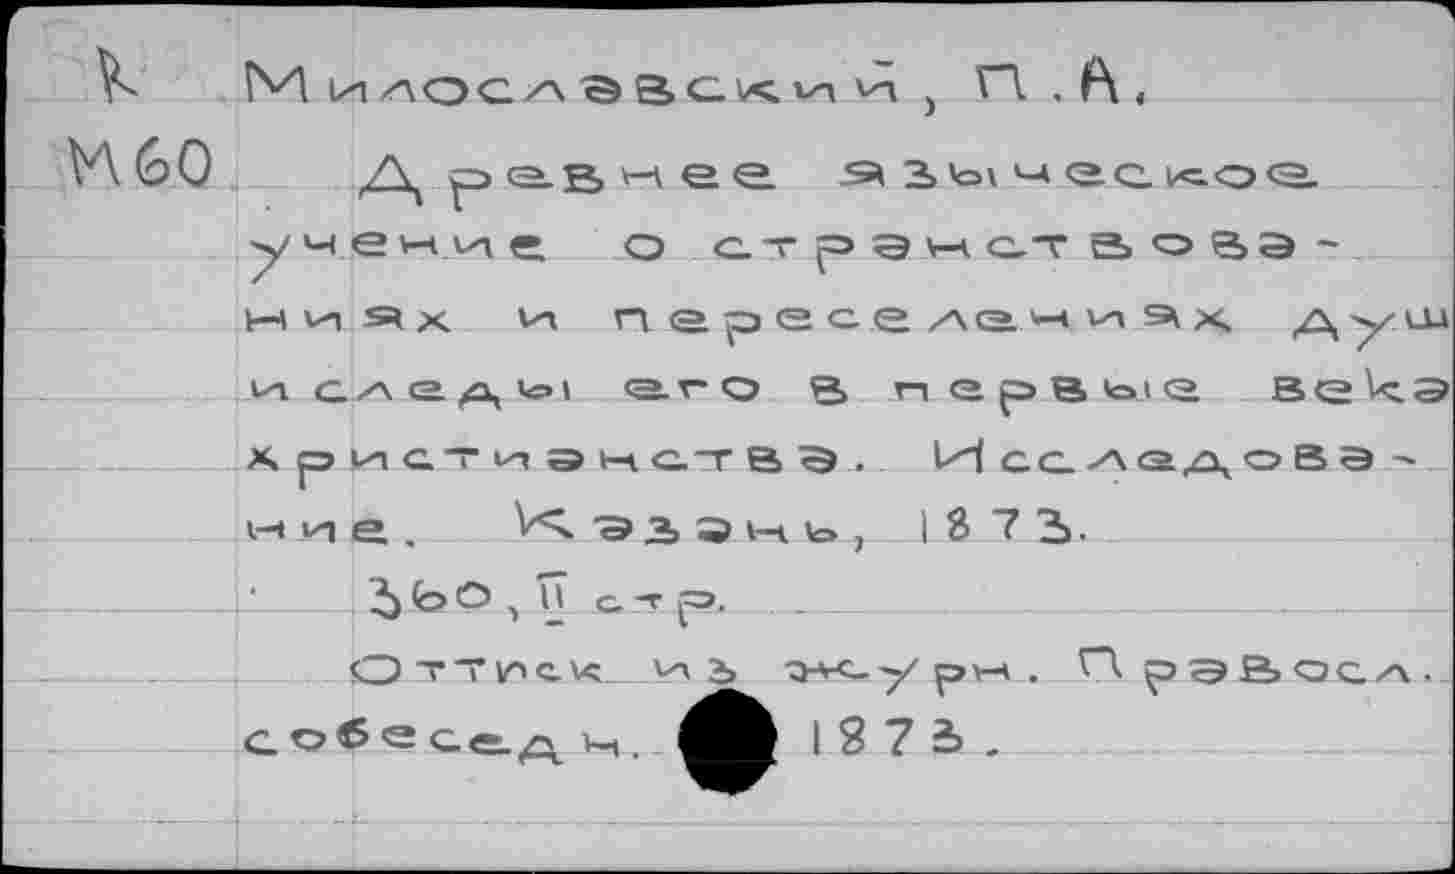 К Милославский, П.А.
М60 Древнее языческое
учение о странствова-
ниях и переселениях душ
и следы его в первые века
христианства. Исследова-
ние. Казань, 1873.
360, II стр.
Оттиск из журн. Правосл.
собеседн. 1873.